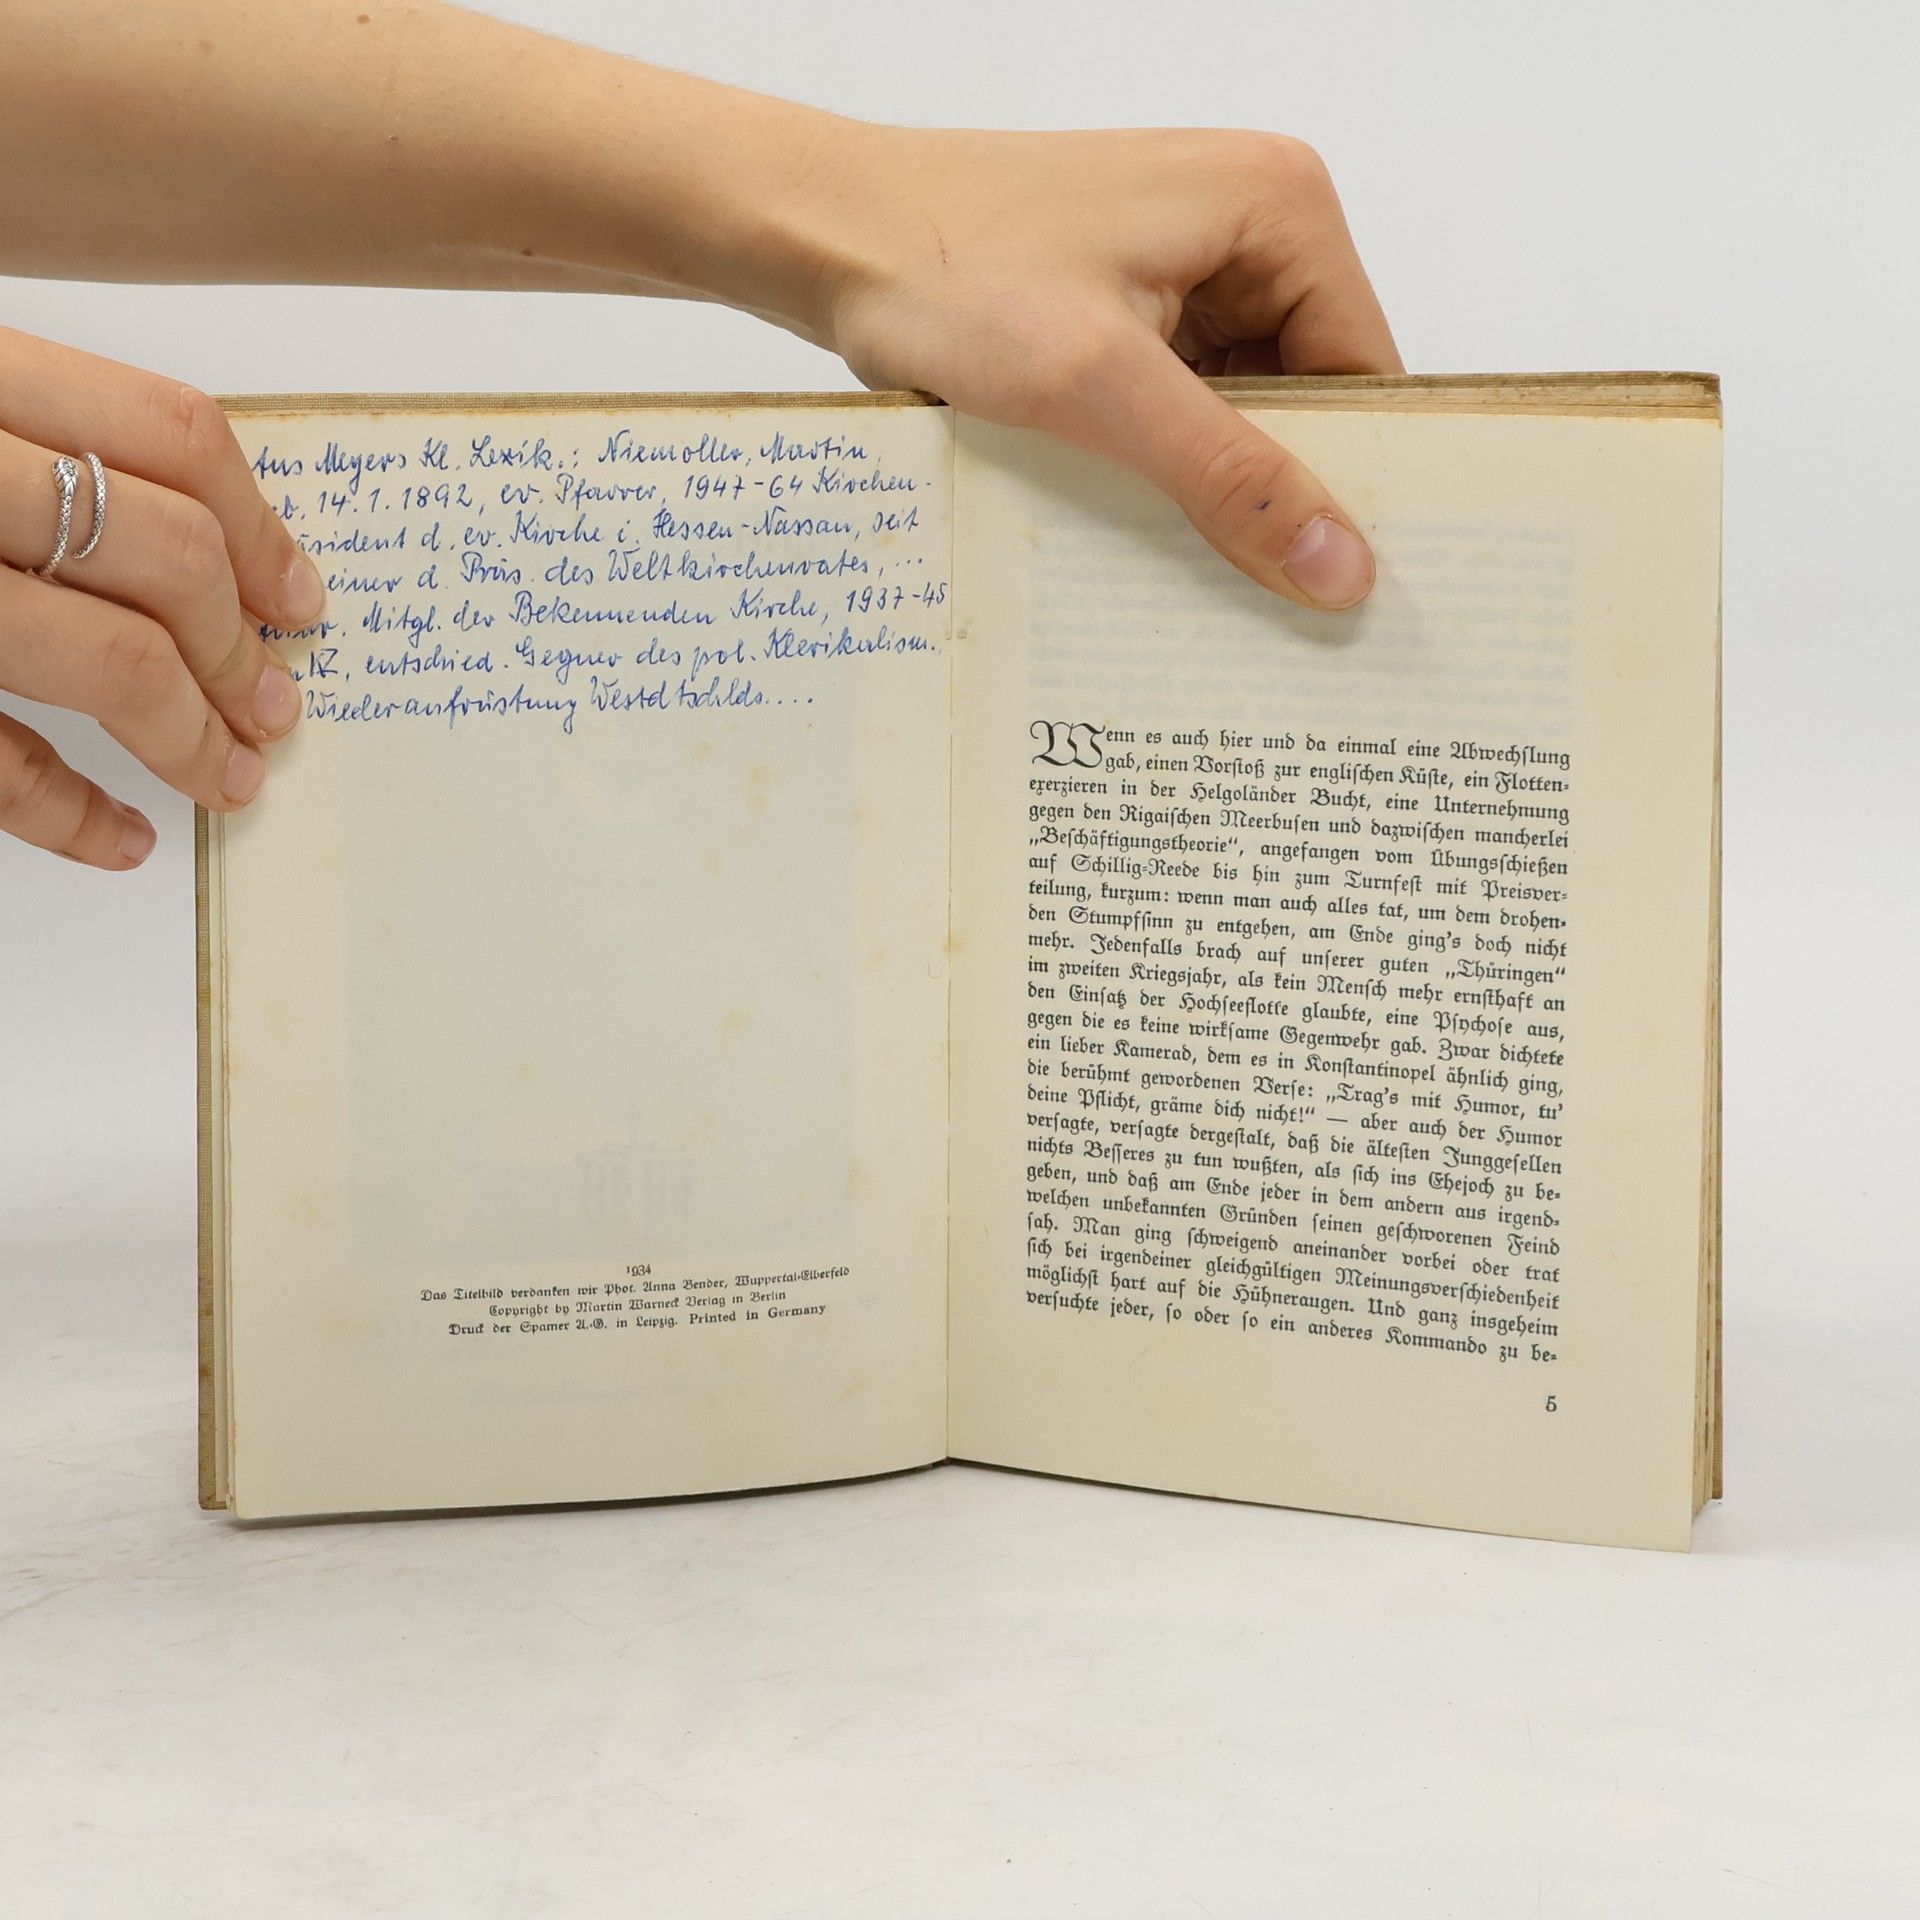 Aus Meyers Kl. Lexik.: Niemöller, Martin,
eb. 14. 1. 1892, ev. Pfarrer, 1947-64 Kirchen-
äsident d. ev. Kirche i. Hessen-Nassau, seit
einer d. Präs. des Weltkirchenrates, ...
Mitgl. der Bekennenden Kirche, 1937-45
KZ, entschied. Gegner des pol. Klerikalism.
Wiederaufrüstung Westdtschlds....
1934
Das Titelbild verdanken wir Phot. Anna Bender, Wuppertal-Elberfeld
Copyright by Martin Warneck Verlag in Berlin
Druck der Spamer A.-G. in Leipzig. Printed in Germany
Wenn es auch hier und da einmal eine Abwechslung
gab, einen Vorstoß zur englischen Küste, ein Flotten-
exerzieren in der Helgoländer Bucht, eine Unternehmung
gegen den Rigaischen Meerbusen und dazwischen mancherlei
„Beschäftigungstheorie“, angefangen vom Übungsschießen
auf Schillig-Reede bis hin zum Turnfest mit Preisver-
teilung, kurzum: wenn man auch alles tat, um dem drohen-
den Stumpfsinn zu entgehen, am Ende ging's doch nicht
mehr. Jedenfalls brach auf unserer guten „Thüringen“
im zweiten Kriegsjahr, als kein Mensch mehr ernsthaft an
den Einsatz der Hochseeflotte glaubte, eine Psychose aus,
gegen die es keine wirksame Gegenwehr gab. Zwar dichtete
ein lieber Kamerad, dem es in Konstantinopel ähnlich ging,
die berühmt gewordenen Verse: „Trag's mit Humor, tu'
deine Pflicht, gräme dich nicht!“ — aber auch der Humor
versagte, versagte dergestalt, daß die ältesten Junggesellen
nichts Besseres zu tun wußten, als sich ins Ehejoch zu be-
geben, und daß am Ende jeder in dem andern aus irgend-
welchen unbekannten Gründen seinen geschworenen Feind
sah. Man ging schweigend aneinander vorbei oder trat
sich bei irgendeiner gleichgültigen Meinungsverschiedenheit
möglichst hart auf die Hühneraugen. Und ganz insgeheim
versuchte jeder, so oder so ein anderes Kommando zu be-
5